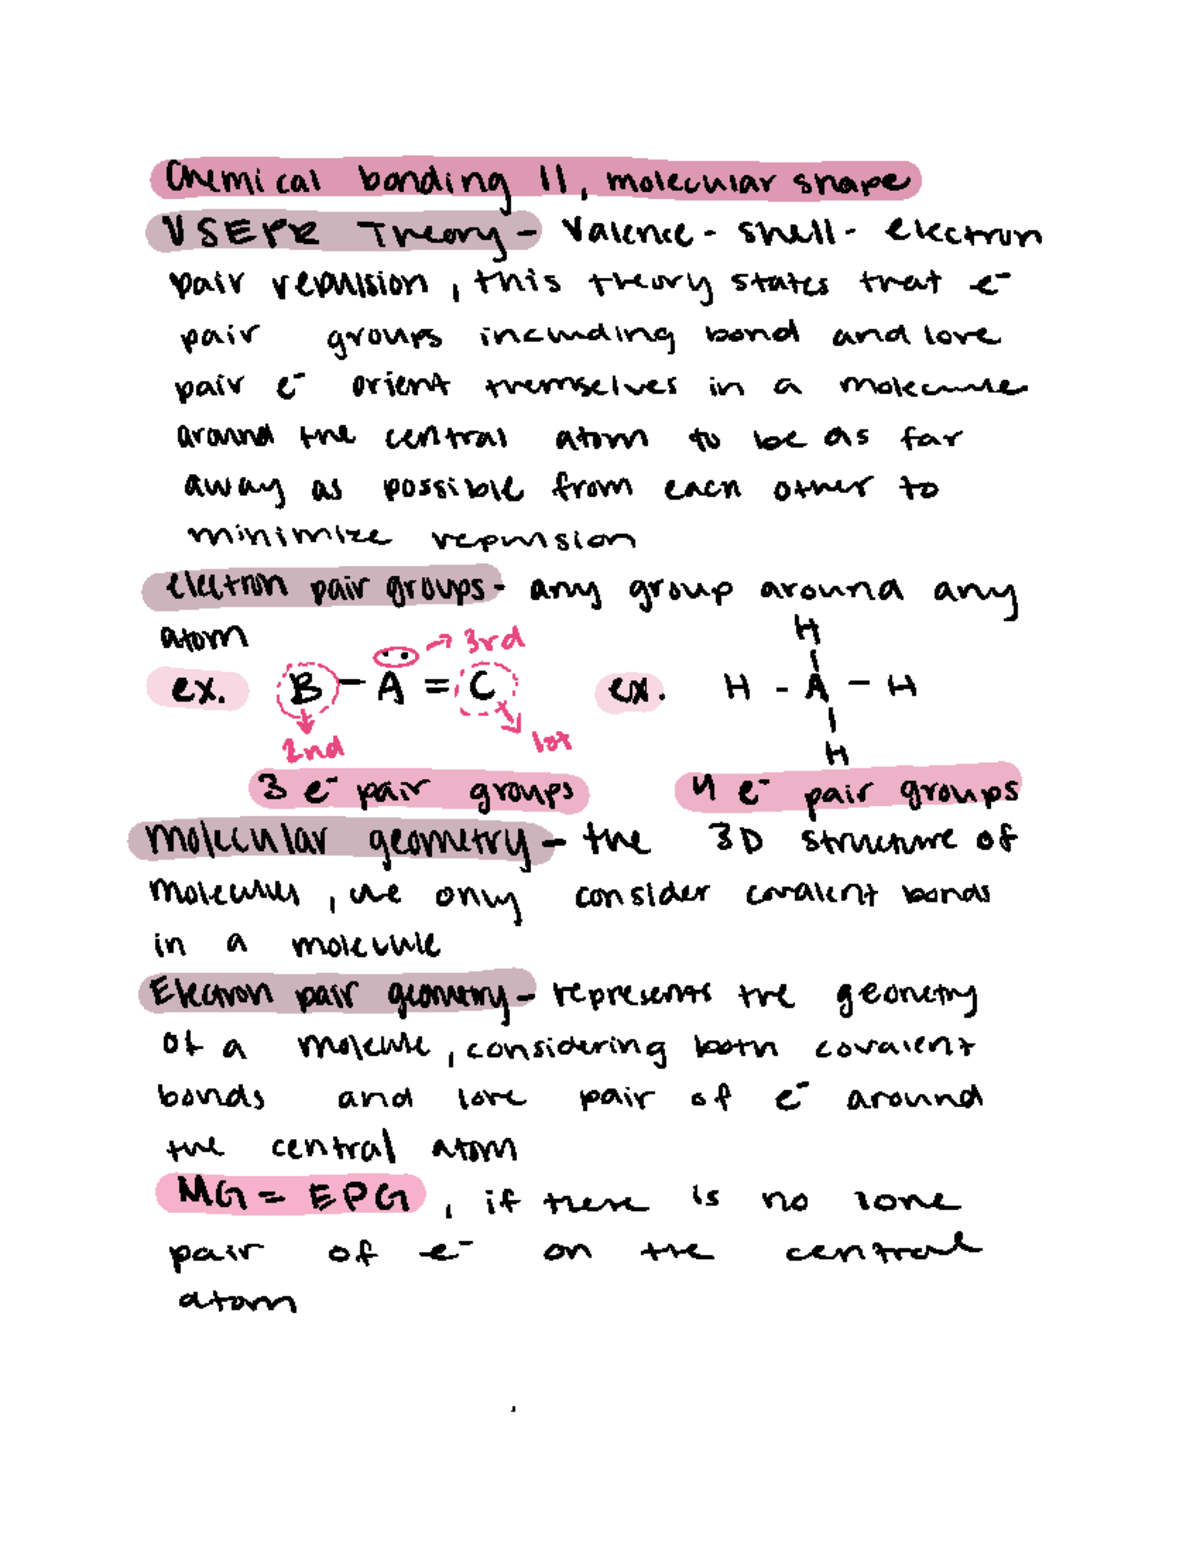 Chemical bonding II, molecular shape
VSEPR Theory - Valence - shell - electron
pair repulsion, this theory states that e⁻
pair groups including bond and lone
pair e⁻ orient themselves in a molecule
around the central atom to be as far
away as possible from each other to
minimize repulsion
electron pair groups - any group around any
atom
ex. B - A = C
→ 3rd
2nd
1st
3 e⁻ pair groups
ex. H - A - H
H
H
4 e⁻ pair groups
molecular geometry - the 3D structure of
molecules, we only consider covalent bonds
in a molecule
Electron pair geometry - represents the geometry
of a molecule, considering both covalent
bonds and lone pair of e⁻ around
the central atom
MG = EPG, if there is no lone
pair of e⁻ on the central
atom